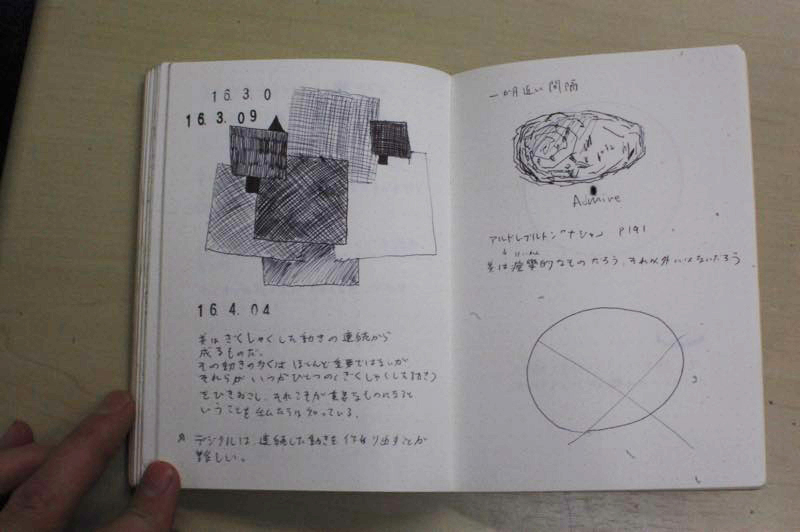 16.3.0
16.3.09
16.4.04
美はぎくしゃくした動きの連続から
成るものだ。
その動きの多くは ほとんど重要ではないが
それらが いつかひとつの(ぎくしゃくした動き)
をひきおこし、それこそが重要なものになると
いうことを私たちは知っている。
デジタルは、連続した動きを作り出すことが
難しい。
一か月近い 間隔
Admire
アルドレブルトン「ナジャ」 P191
けいれん
美は痙攣的なものだろう、それ以外にはないだろう